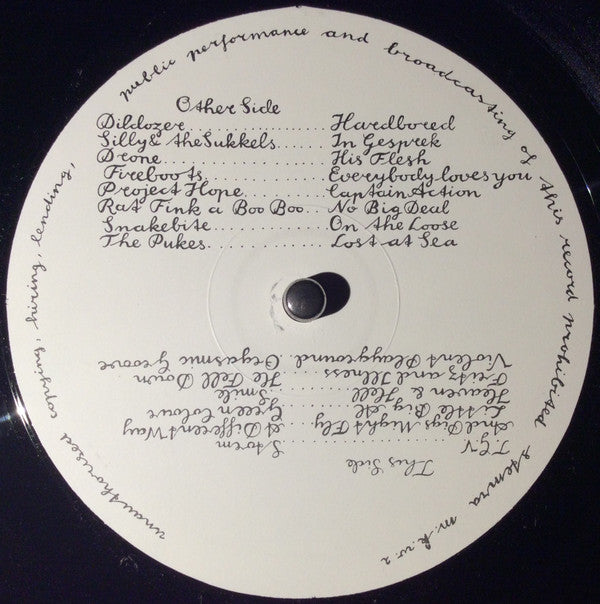 unauthorised copying, hiring, lending, public performance and broadcasting of this record prohibited stemra m.k.w.2
Other Side
Dildozer.............. Hardbored
Silly & the Sukkels...... In Gesprek
Drone................. His Flesh
Fireboots............. Everybody loves you
Project Hope.......... Captain Action
Rat Fink a Boo Boo... No Big Deal
Snakebite............. On the Loose
The Pukes............. Lost at Sea
This Side
T.G.V .............. Storm
And Pigs Might Fly... A Different Way
Little Big Al....... Green Colour
Heaven & Hell....... Smile
Fritz and Illness.... He Fell Down
Violent Playground. Orgasmic Groove